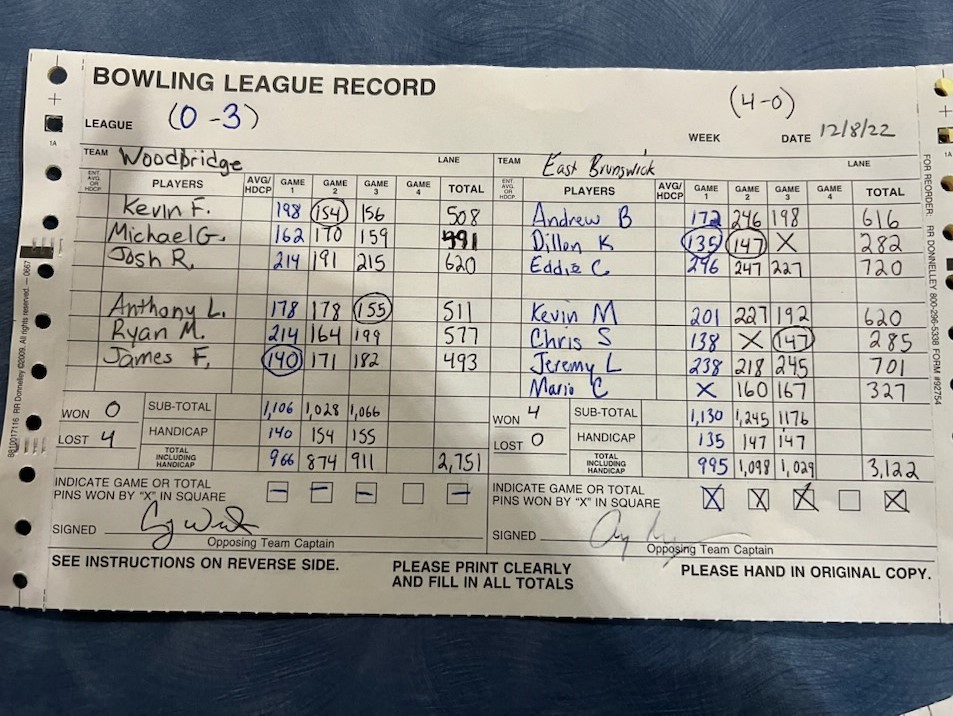 BOWLING LEAGUE RECORD
LEAGUE (0-3) (4-0) WEEK DATE 12/8/22
TEAM Woodbridge LANE TEAM East Brunswick LANE
ENT. AVG. OR HDCP. PLAYERS AVG/HDCP GAME 1 GAME 2 GAME 3 GAME 4 TOTAL ENT. AVG. OR HDCP. PLAYERS AVG/HDCP GAME 1 GAME 2 GAME 3 GAME 4 TOTAL
Kevin F. 198 154 156 508 Andrew B 172 246 198 616
Michael G. 162 170 159 491 Dillon K 135 147 X 282
Josh R. 214 191 215 620 Eddie C 246 247 227 720
Anthony L. 178 178 155 511 Kevin M 201 227 192 620
Ryan M. 214 164 199 577 Chris S 138 X 147 285
James F. 140 171 182 493 Jeremy L 238 218 245 701
Mario C X 160 167 327
WON 0 SUB-TOTAL 1,106 1,028 1,066 WON 4 SUB-TOTAL 1,130 1,245 1176
LOST 4 HANDICAP 140 154 155 LOST 0 HANDICAP 135 147 147
TOTAL INCLUDING HANDICAP 966 874 911 2,751 TOTAL INCLUDING HANDICAP 995 1,098 1,029 3,122
INDICATE GAME OR TOTAL PINS WON BY "X" IN SQUARE – – – – INDICATE GAME OR TOTAL PINS WON BY "X" IN SQUARE X X X X
SIGNED SIGNED
Opposing Team Captain Opposing Team Captain
SEE INSTRUCTIONS ON REVERSE SIDE. PLEASE PRINT CLEARLY AND FILL IN ALL TOTALS PLEASE HAND IN ORIGINAL COPY.
FOR REORDER: RR DONNELLEY 800-296-5338 FORM #92754
RR Donnelley ©2009. All rights reserved. — 0667
1A
1A